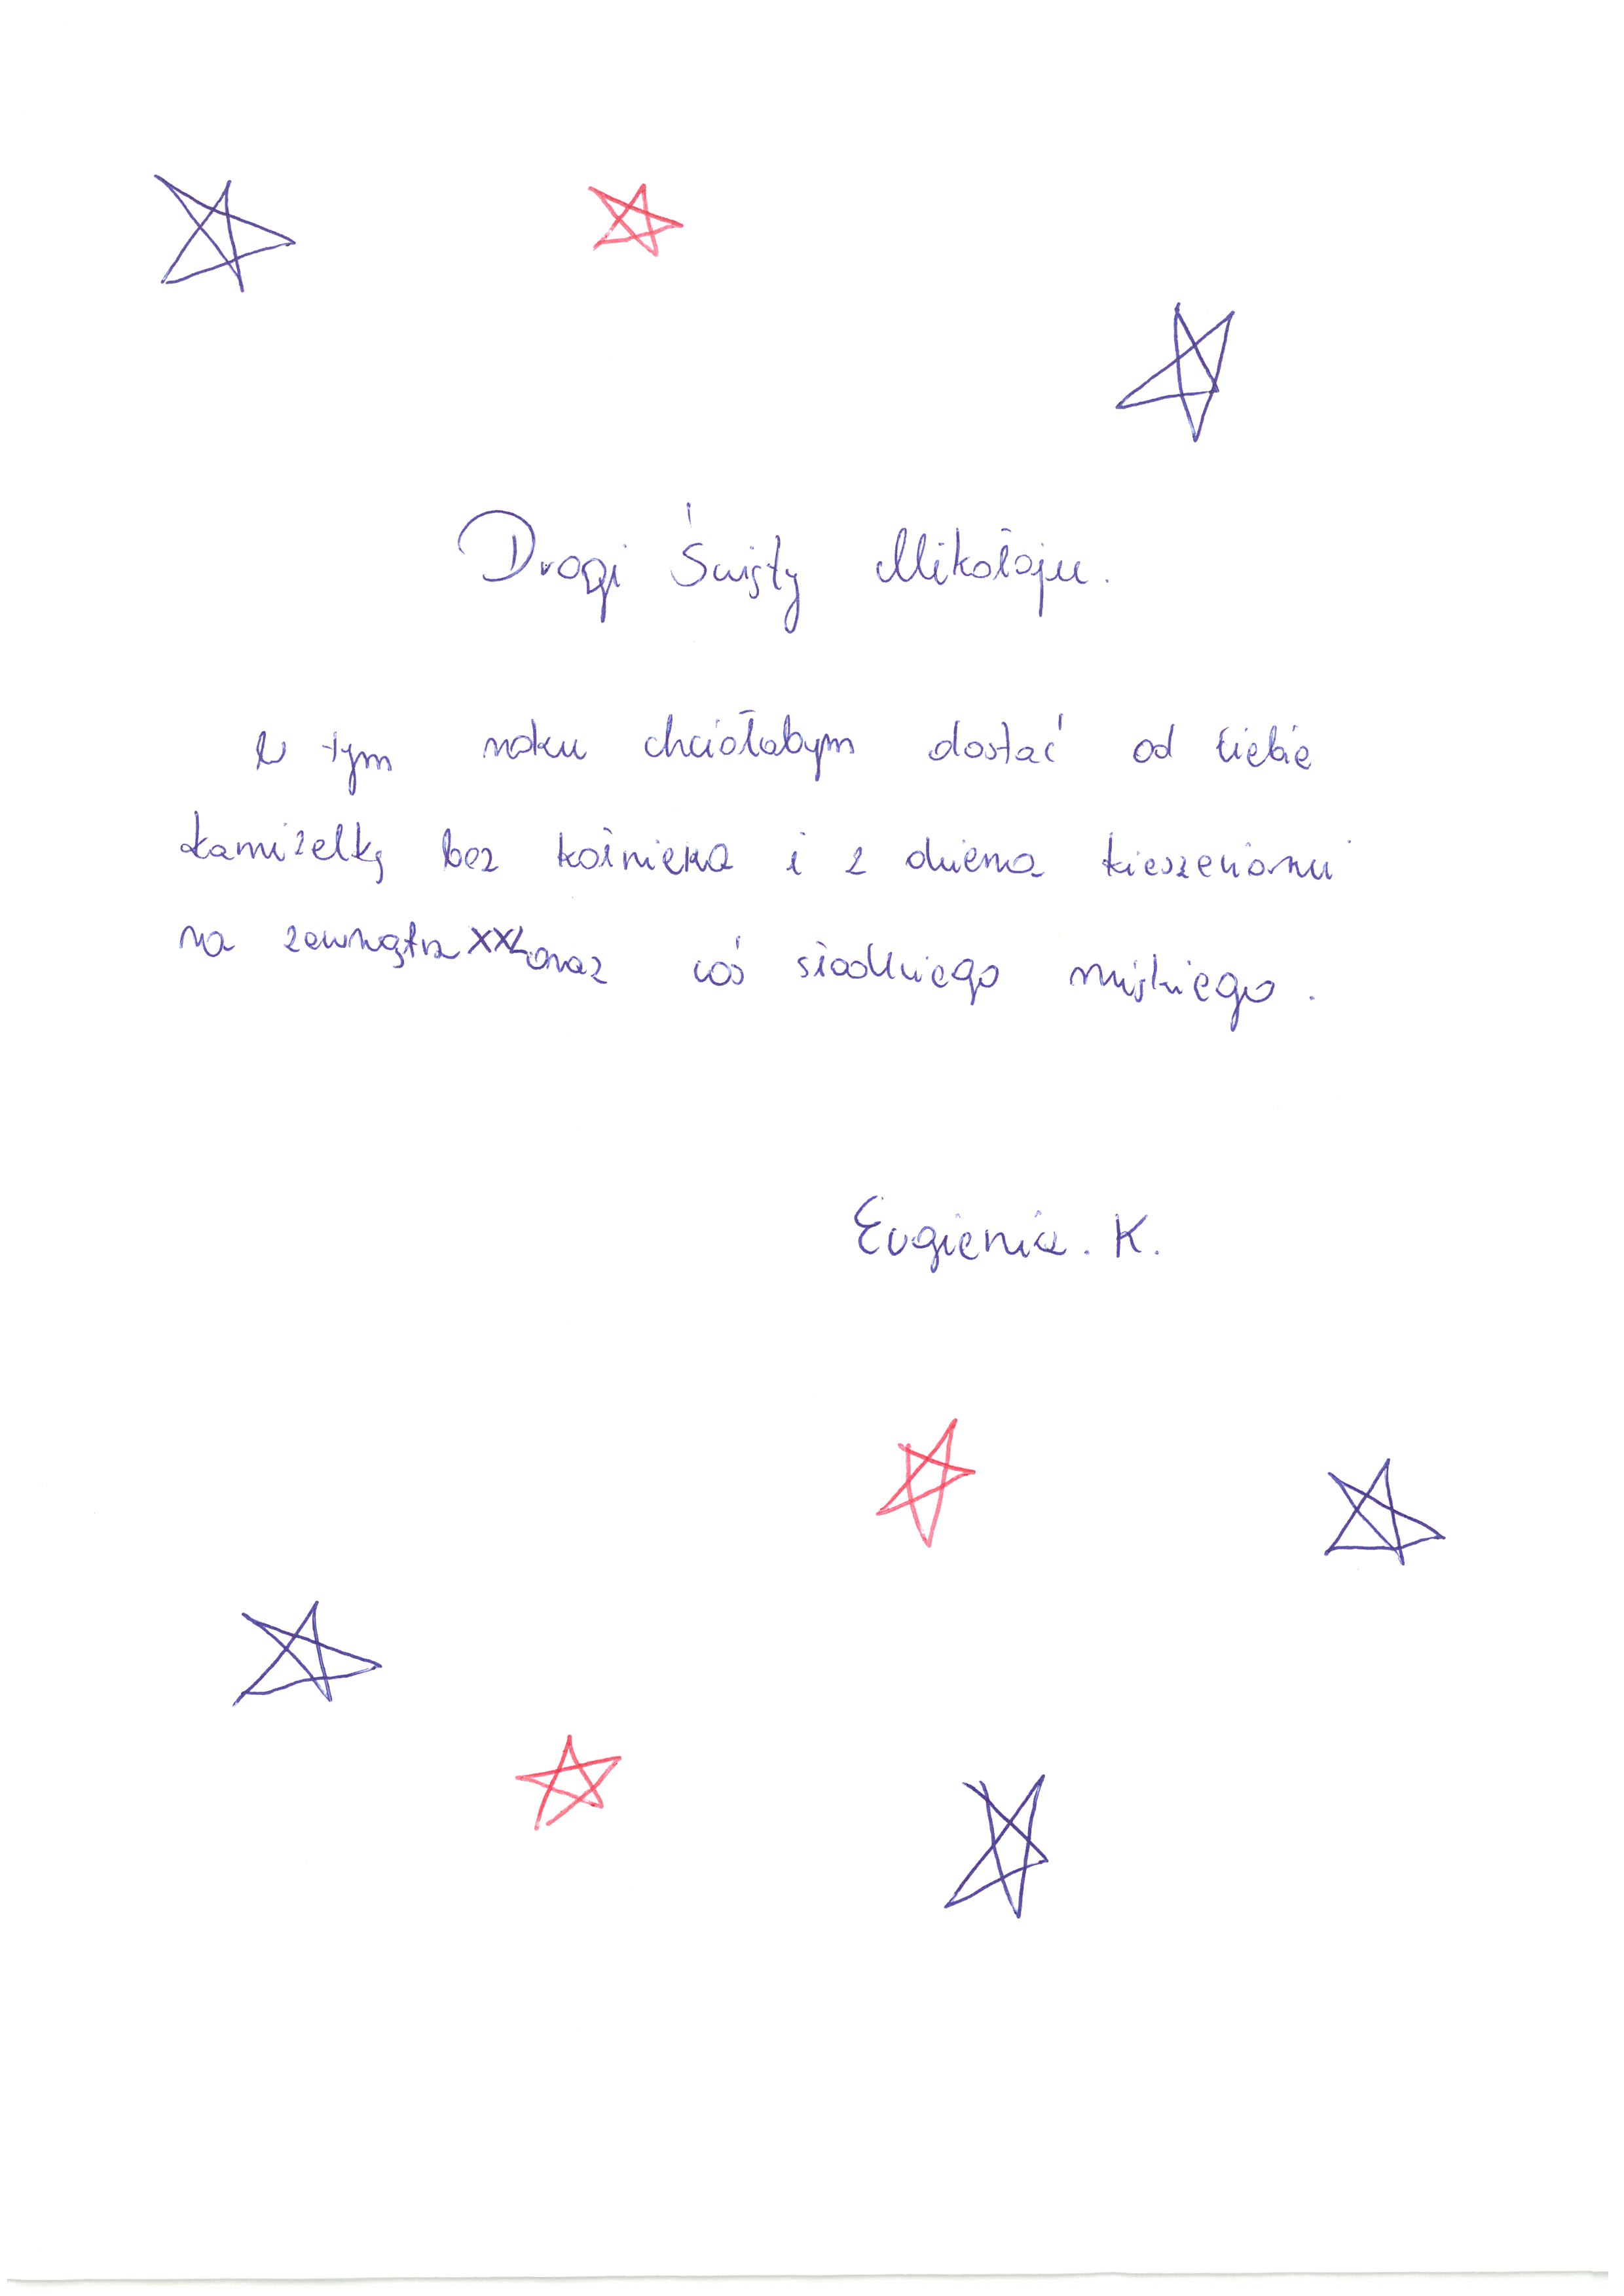 Drogi Święty Mikołaju.
W tym roku chciałabym dostać od Ciebie
kamizelkę bez kołnierza i z dwiema kieszeniami
na zewnątrz XXL oraz coś słodkiego miękkiego.
Eugienia. K.